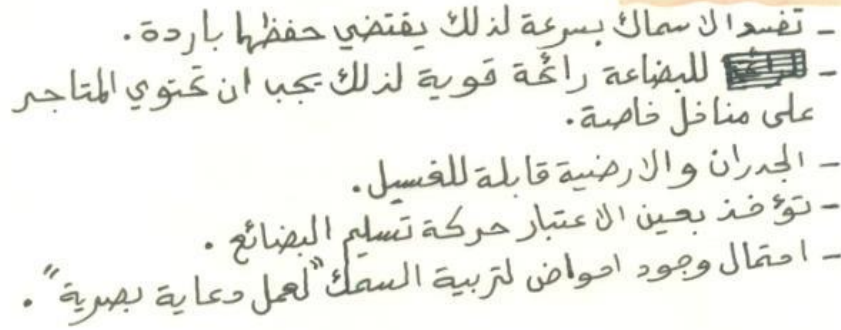 - تفسد الاسماك بسرعة لذلك يقتضي حفظها باردة.
- للبضاعة رائحة قوية لذلك يجب ان تحتوي المتاجر
على مناخل خاصة.
- الجدران والارضية قابلة للغسيل.
- تؤخذ بعين الاعتبار حركة تسليم البضائع.
- احتمال وجود احواض لتربية السمك "لعمل دعاية بصرية".